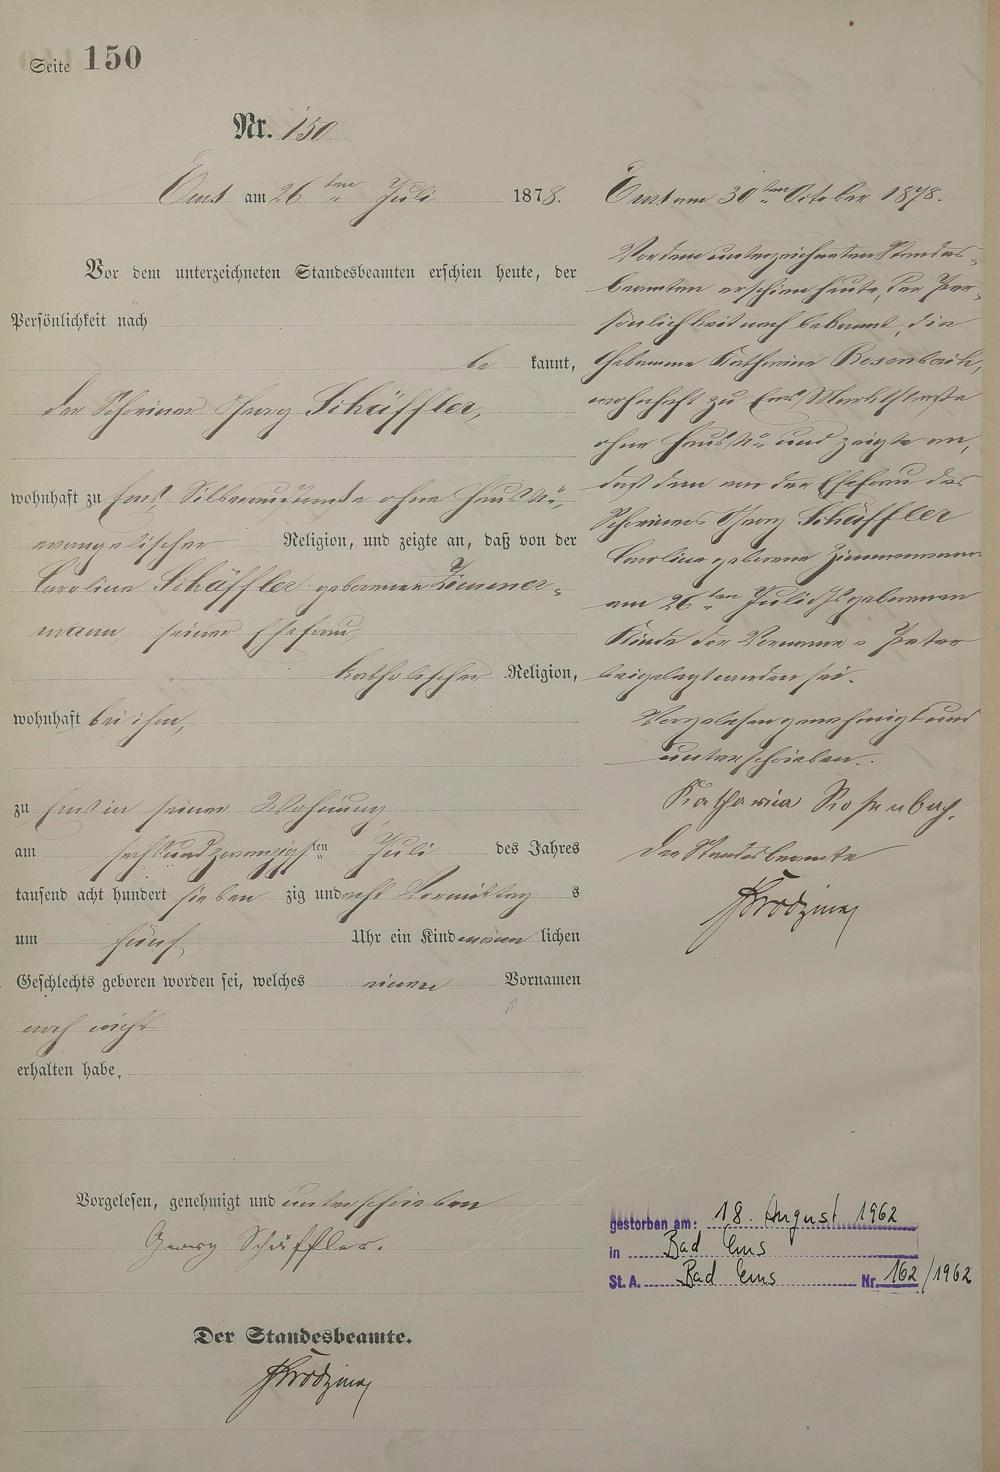 Seite 150
Nr. 150
Ems am 26ten Juli 1878.
Vor dem unterzeichneten Standesbeamten erschien heute, der
Persönlichkeit nach
be kannt,
der Schreiner Georg Schäffler,
wohnhaft zu Ems, ohne Haus Nr.,
evangelischer Religion, und zeigte an, daß von der
Caroline Schäffler geborenen Zimmer-
mann, seiner Ehefrau,
katholischer Religion,
wohnhaft bei ihm,
zu Ems in seiner Wohnung
am sechsundzwanzigsten Juli des Jahres
tausend acht hundert sieben zig und acht Vormittag s
um fünf Uhr ein Kind männ lichen
Geschlechts geboren worden sei, welches einen Vornamen
noch nicht
erhalten habe.
Vorgelesen, genehmigt und unterschrieben
Georg Schäffler.
Der Standesbeamte.
Ems am 30ten October 1878.
Vor dem unterzeichneten Standes-
beamten erschien heute, der Per-
sönlichkeit nach bekannt, die
Hebamme Katharina Rosenbach,
wohnhaft zu Ems, Marktstraße
ohne Haus Nr. und zeigte an,
daß dem von der Ehefrau des
Schreiners Georg Schäffler
Caroline geborene Zimmermann
am 26ten Juli d Js geborenen
Kinde der Vorname Peter
beigelegt worden sei.
Vorgelesen genehmigt und
unterschrieben.
Katharina Rosenbach.
Der Standesbeamte
gestorben am: 18. August 1962
in Bad Ems
St. A. Bad Ems Nr. 162/1962